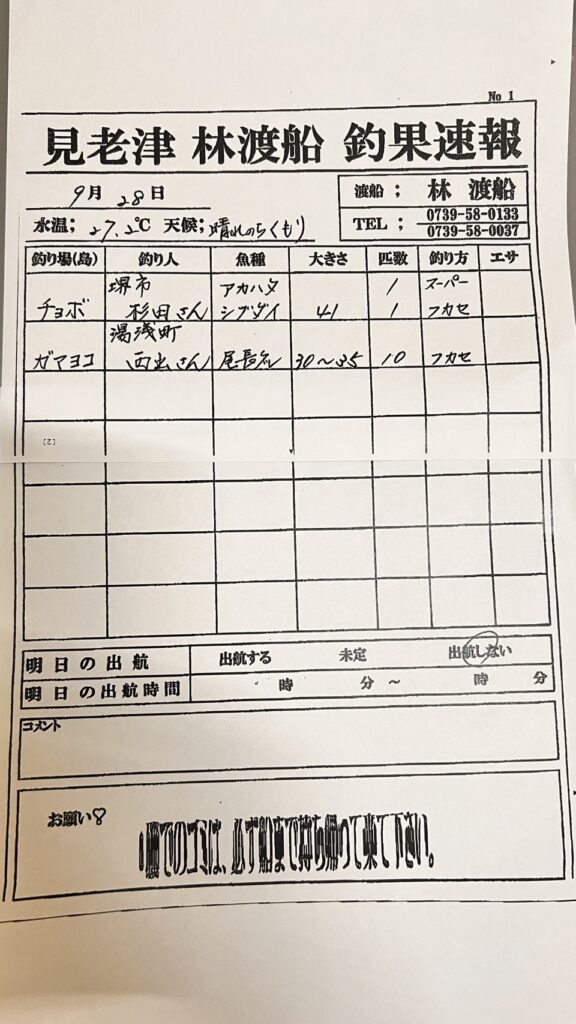 No 1
見老津 林渡船 釣果速報
9月 28日
渡船; 林 渡船
水温; 27.2℃ 天候; 晴れのちくもり
TEL; 0739-58-0133
0739-58-0037
釣り場(島) 釣り人 魚種 大きさ 匹数 釣り方 エサ
堺市 アカハタ 1 スーパー
チョボ 杉田さん シブダイ 41 1 フカセ
湯浅町
ガマヨコ 西出さん 尾長グレ 30〜35 10 フカセ
[2]
明日の出航 出航する 未定 出航しない
明日の出航時間 時 分〜 時 分
コメント
お願い♡
磯でのゴミは、必ず船まで持ち帰って来て下さい。